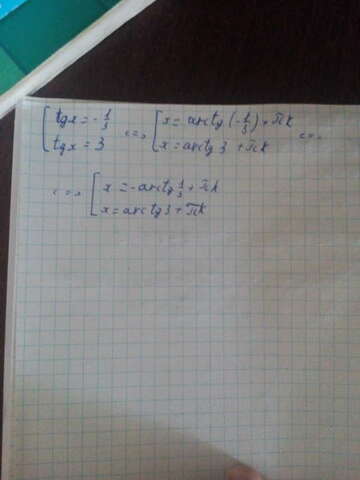 [ tgx = -1/3 <=> [ x = arctg(-1/3) + πk <=>
[ tgx = 3 [ x = arctg 3 + πk
<=> [ x = -arctg 1/3 + πk
[ x = arctg 3 + πk